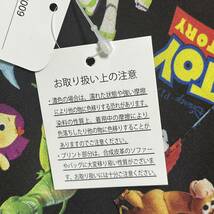 0009
お取り扱い上の注意
・濃色の場合は、濡れた状態や強い摩擦
により他の物に色移りする恐れがあります。
染料の性質上、着用中の摩擦により
色落ちしたり他の物に色移りすることが
ありますのでご注意ください。
・プリント部分は、合成皮革のソファー
やバッグに大変移り易い性質がございます。
お取り扱いには十分ご注意ください。
TOY
Disney